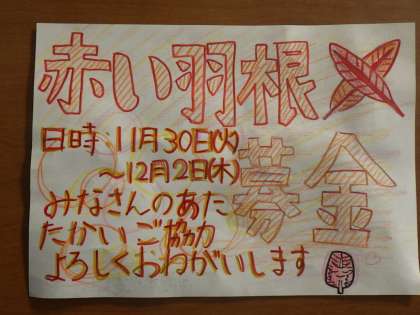 赤い羽根
日時:11月30日(火)
~12月2日(木)
募金
みなさんのあた
たかいご協力
よろしくおねがいします